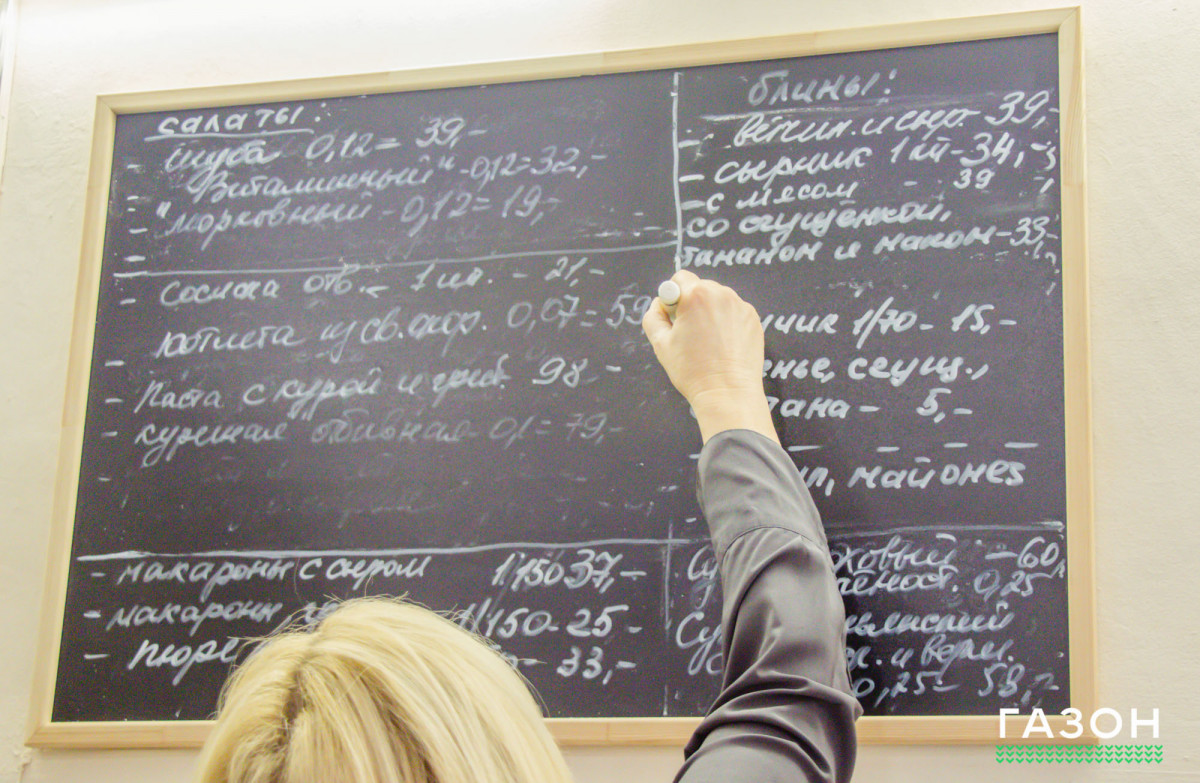 салаты:
- шуба 0,12 = 39,-
- "Витаминный" - 0,12 = 32,-
- "морковный - 0,12 = 19,-
- сосиска отв. - 1 шт. - 21,-
- котлета из св. фар. 0,07 = 59
- Паста с курой и гриб. 98 -
- куриная отбивная - 0,1 = 79,-
- макароны с сыром 1/150 37,-
- макароны 1/150 - 25 -
- пюре - 33,-
блины:
- ветчин. и сыр. 39,-
- сырник 1 шт - 34,-
- с мясом - 39
со сгущёнкой,
бананом и маком - 33,-
1/70 - 15,-
сгущ.,
- 5,-
майонез
- 60,
0,25
и верм.
0,25 = 58,-
ГАЗОН